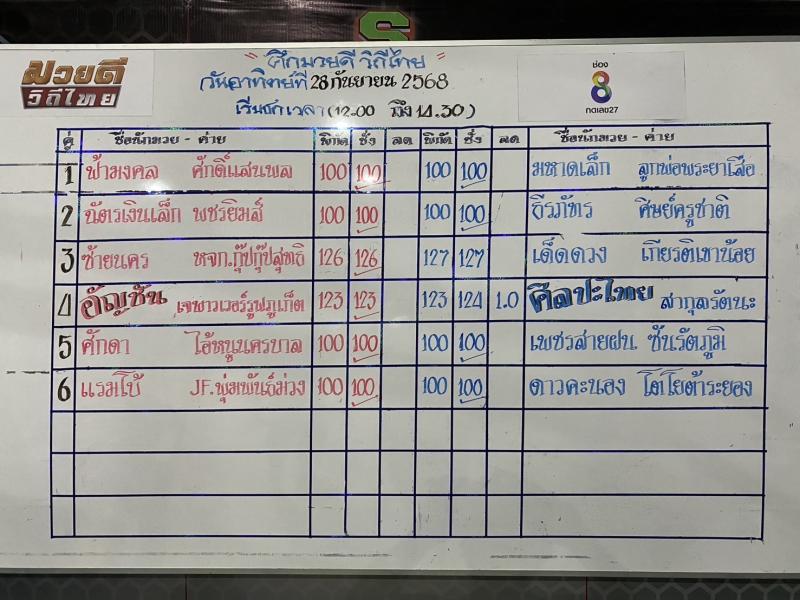 S
มวยดี
วิถีไทย
"ศึกมวยดี วิถีไทย"
วันอาทิตย์ที่ 28 กันยายน 2568
เริ่มชกเวลา (12.00 ถึง 14.30)
ช่อง
8
กดเลข27
คู่ ชื่อนักมวย - ค่าย พิกัด ชั่ง ลด พิกัด ชั่ง ลด ชื่อนักมวย - ค่าย
1 ฟ้ามงคล ศักดิ์แสนพล 100 100 100 100 มหาดเล็ก ลูกพ่อพระยาเสือ
2 ฉัตรเงินเล็ก พชรยิมส์ 100 100 100 100 ธีรภัทร ศิษย์ครูชาติ
3 ซ้ายนคร หจก.กุ๊ปกุ๊ปสุทธิ 126 126 127 127 เด็ดดวง เกียรติเขาน้อย
4 อัญชัน เจพาวเวอร์รูฟภูเก็ต 123 123 123 124 1.0 ศิลปะไทย สากุลรัตนะ
5 ศักดา ไอ้หนูนครบาล 100 100 100 100 เพชรสายฝน ซันรัตภูมิ
6 แรมโบ้ JF.พุ่มพันธ์ม่วง 100 100 100 100 ดาวคะนอง โตโยต้าระยอง